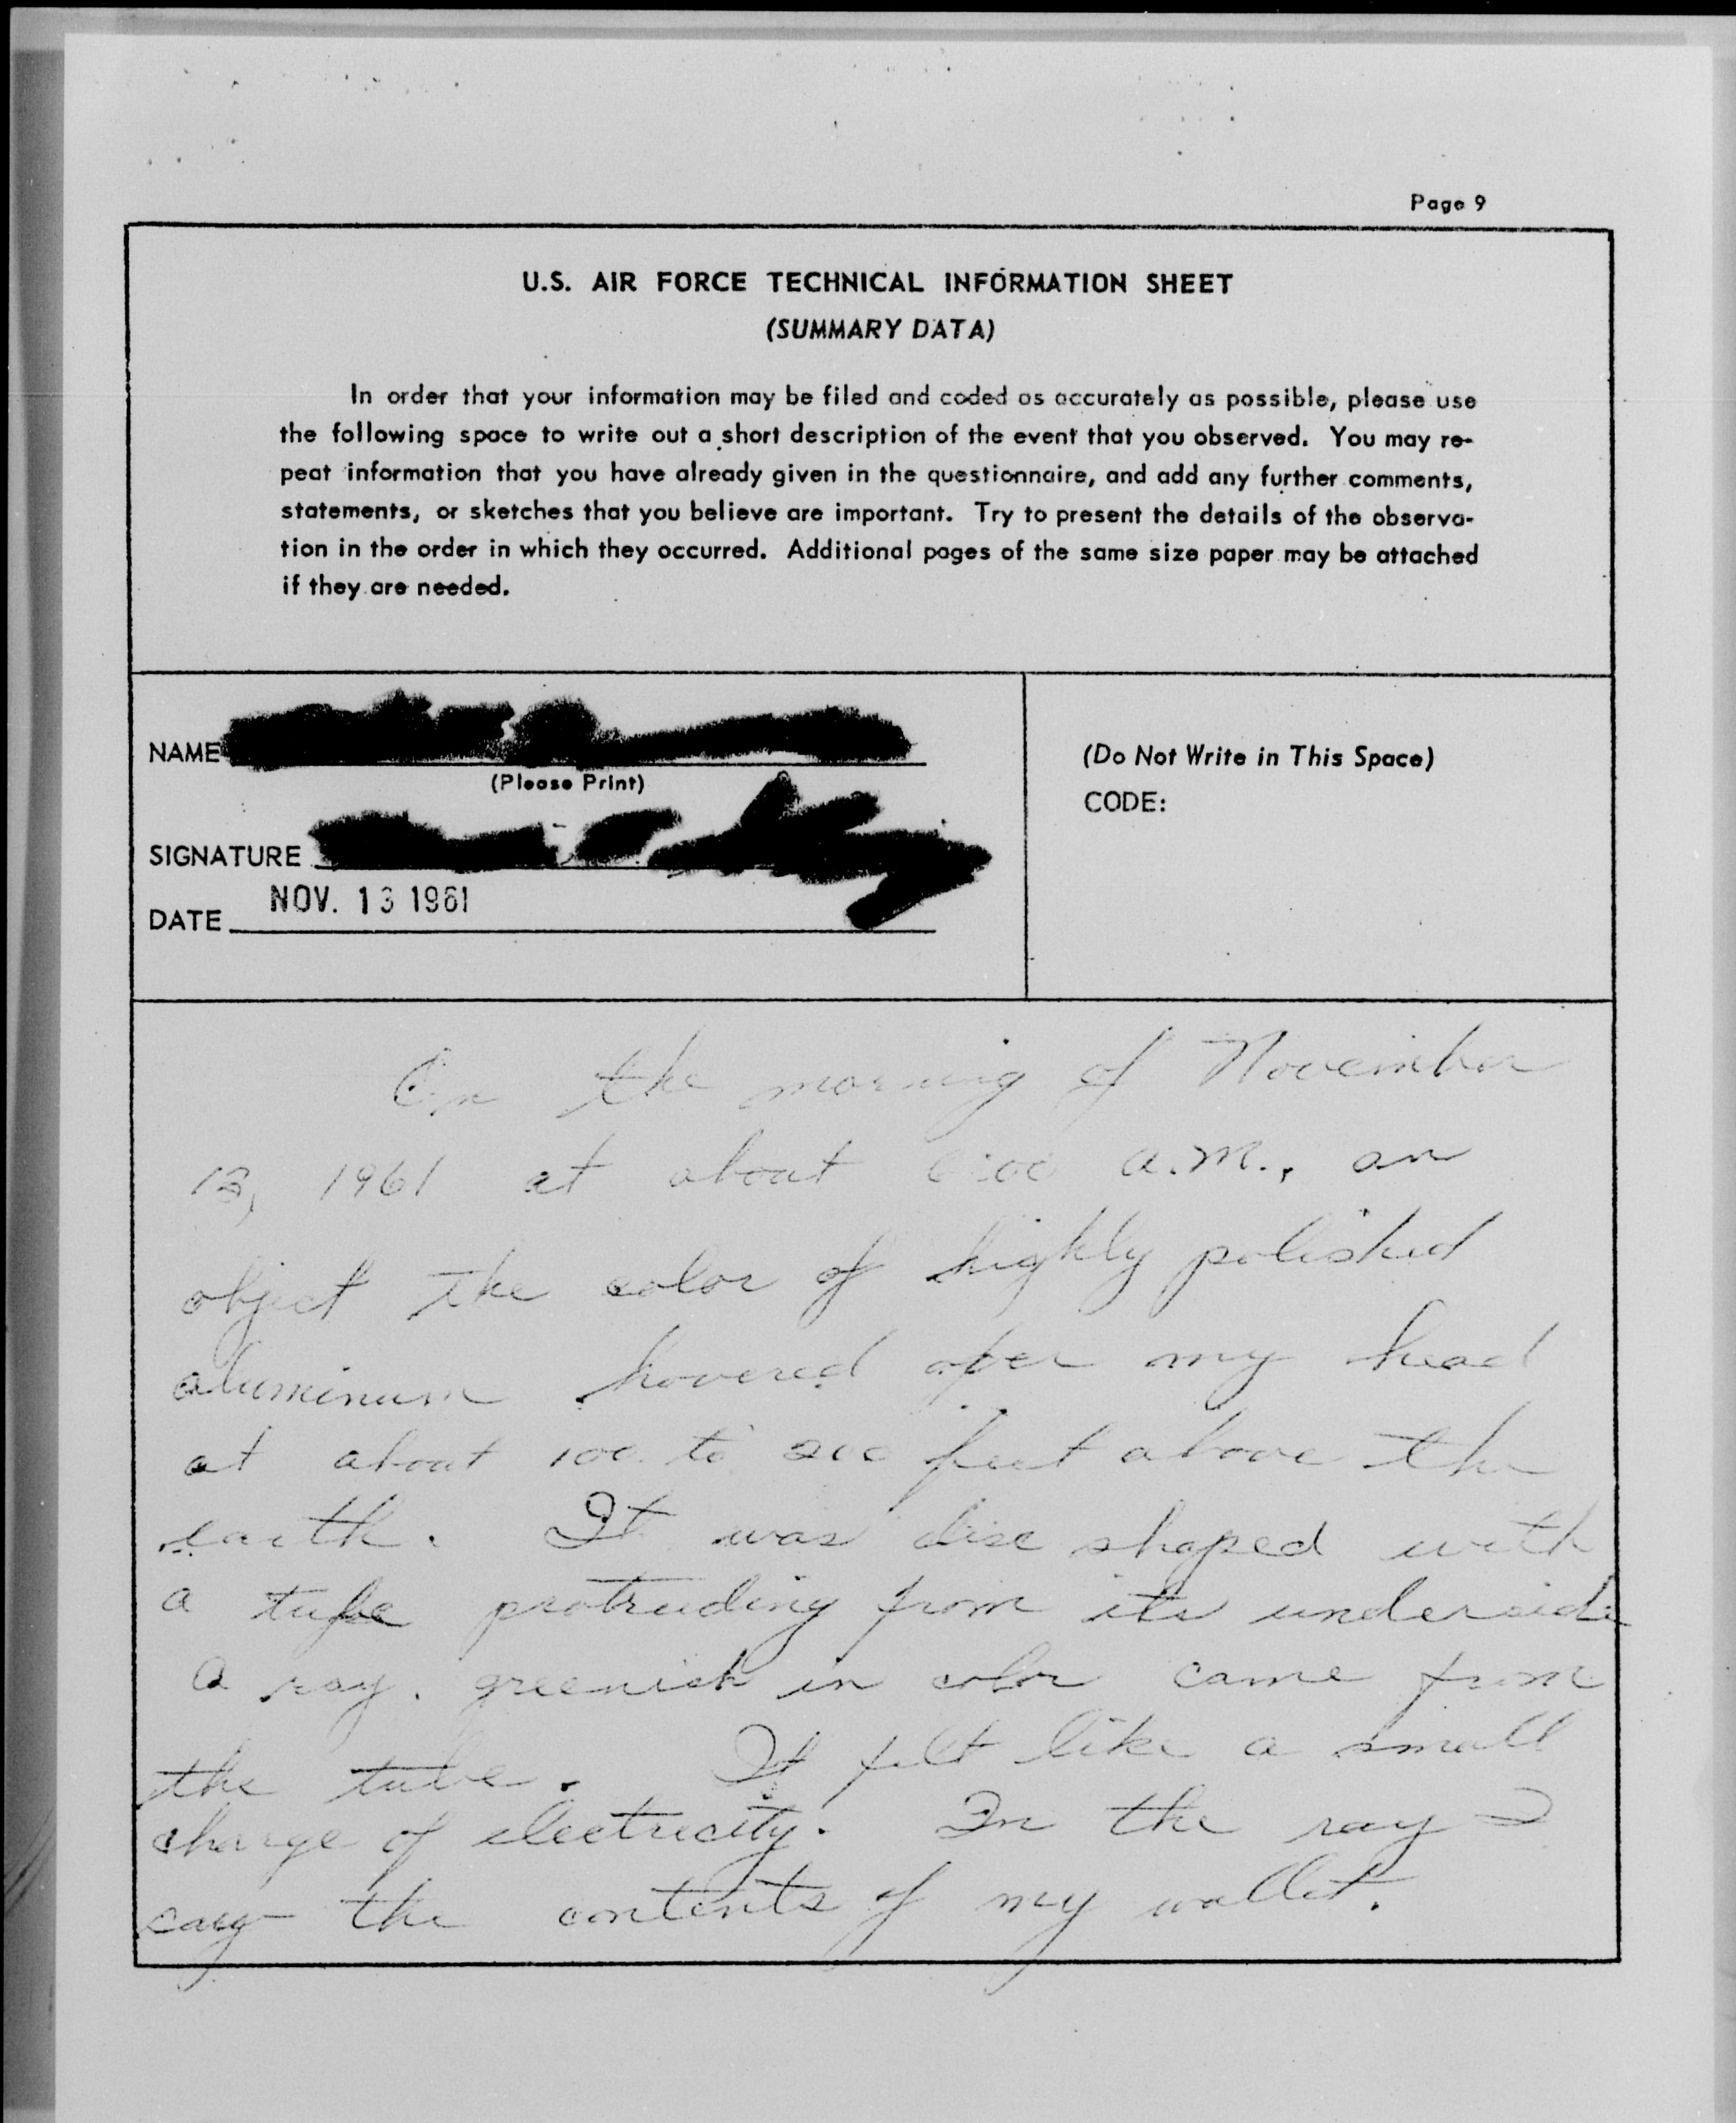 Page 9
U.S. AIR FORCE TECHNICAL INFORMATION SHEET
(SUMMARY DATA)
In order that your information may be filed and coded as accurately as possible, please use
the following space to write out a short description of the event that you observed. You may re-
peat information that you have already given in the questionnaire, and add any further comments,
statements, or sketches that you believe are important. Try to present the details of the observa-
tion in the order in which they occurred. Additional pages of the same size paper may be attached
if they are needed.
NAME
(Please Print)
SIGNATURE
DATE NOV. 13 1961
(Do Not Write in This Space)
CODE:
On the morning of November
13, 1961 at about a.m., an
object the color of highly polished
aluminum hovered over my head
at about 100 to 200 feet above the
earth. It was disc shaped with
a tube protruding from its underside
a ray, greenish in color came from
the tube. It felt like a small
charge of electricity. In the ray I
say the contents of my wallet.